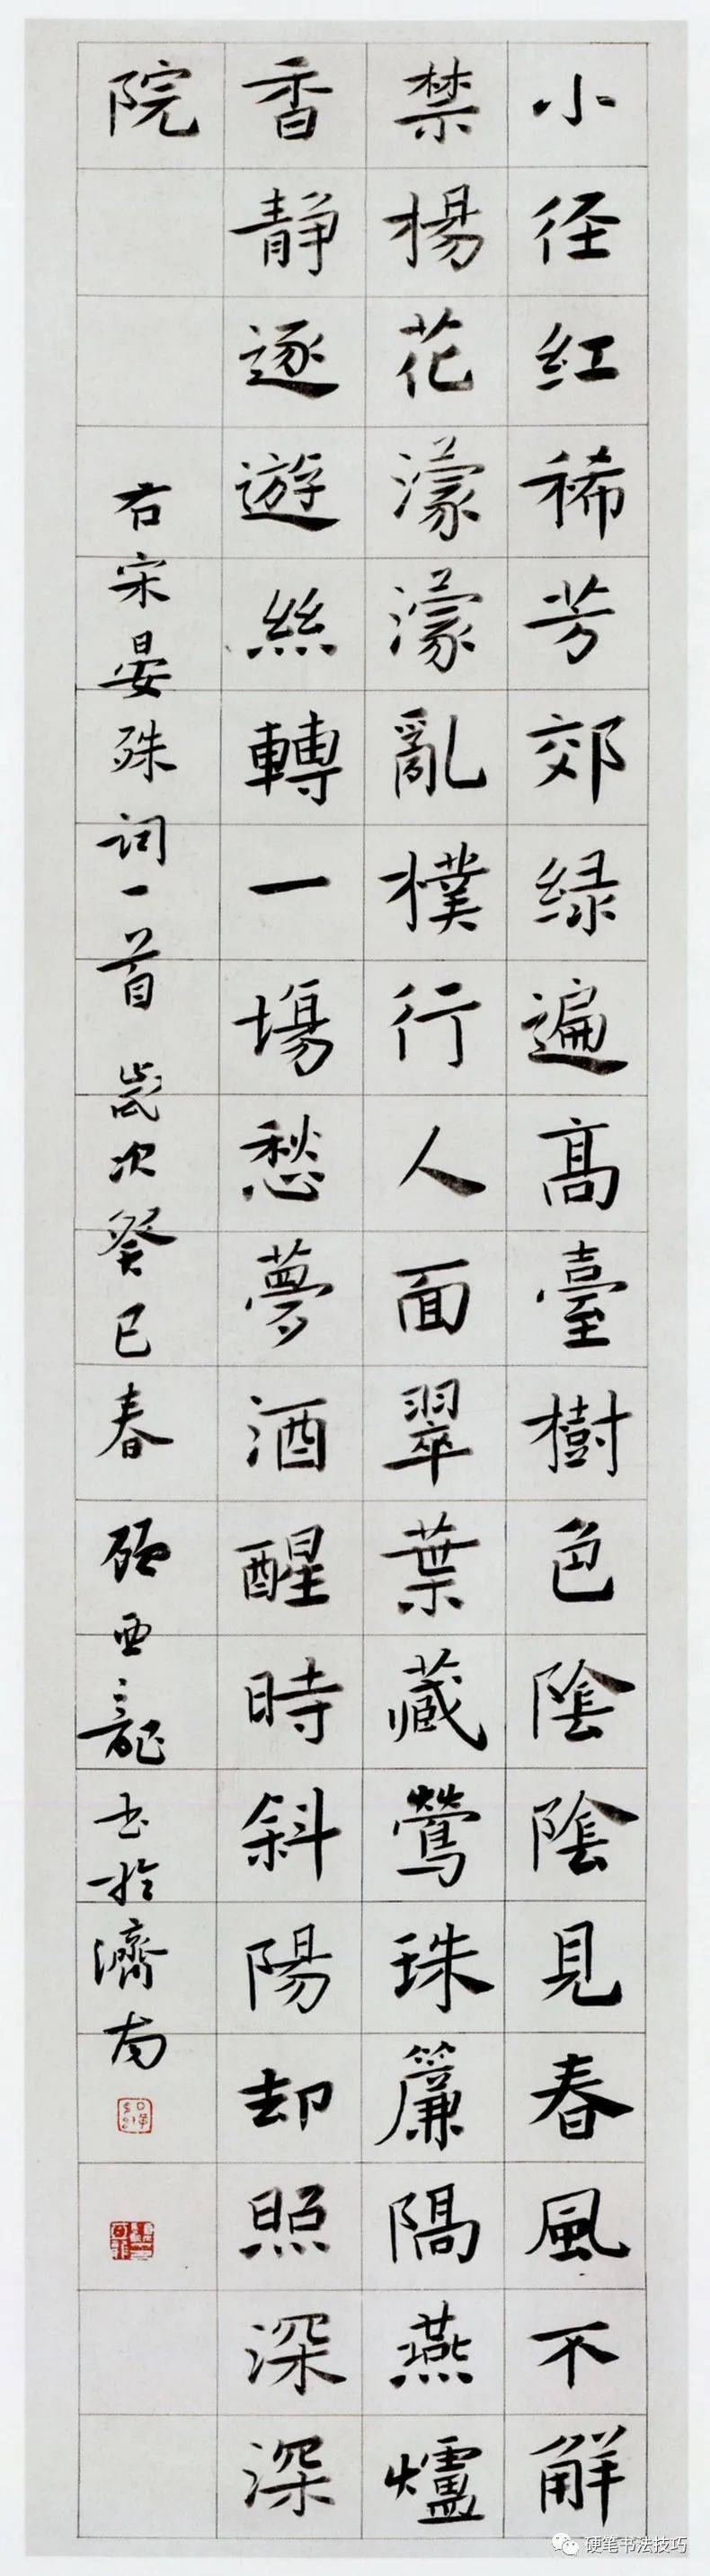 小径红稀芳郊绿遍高臺樹色陰陰見春風不解
禁楊花濛濛亂樸行人面翠葉藏鶯珠簾隔燕爐
香静逐遊絲轉一場愁夢酒醒時斜陽却照深深
院
右宋晏殊词一首 歲次癸巳春 顾亚龍书於濟南
硬笔书法技巧